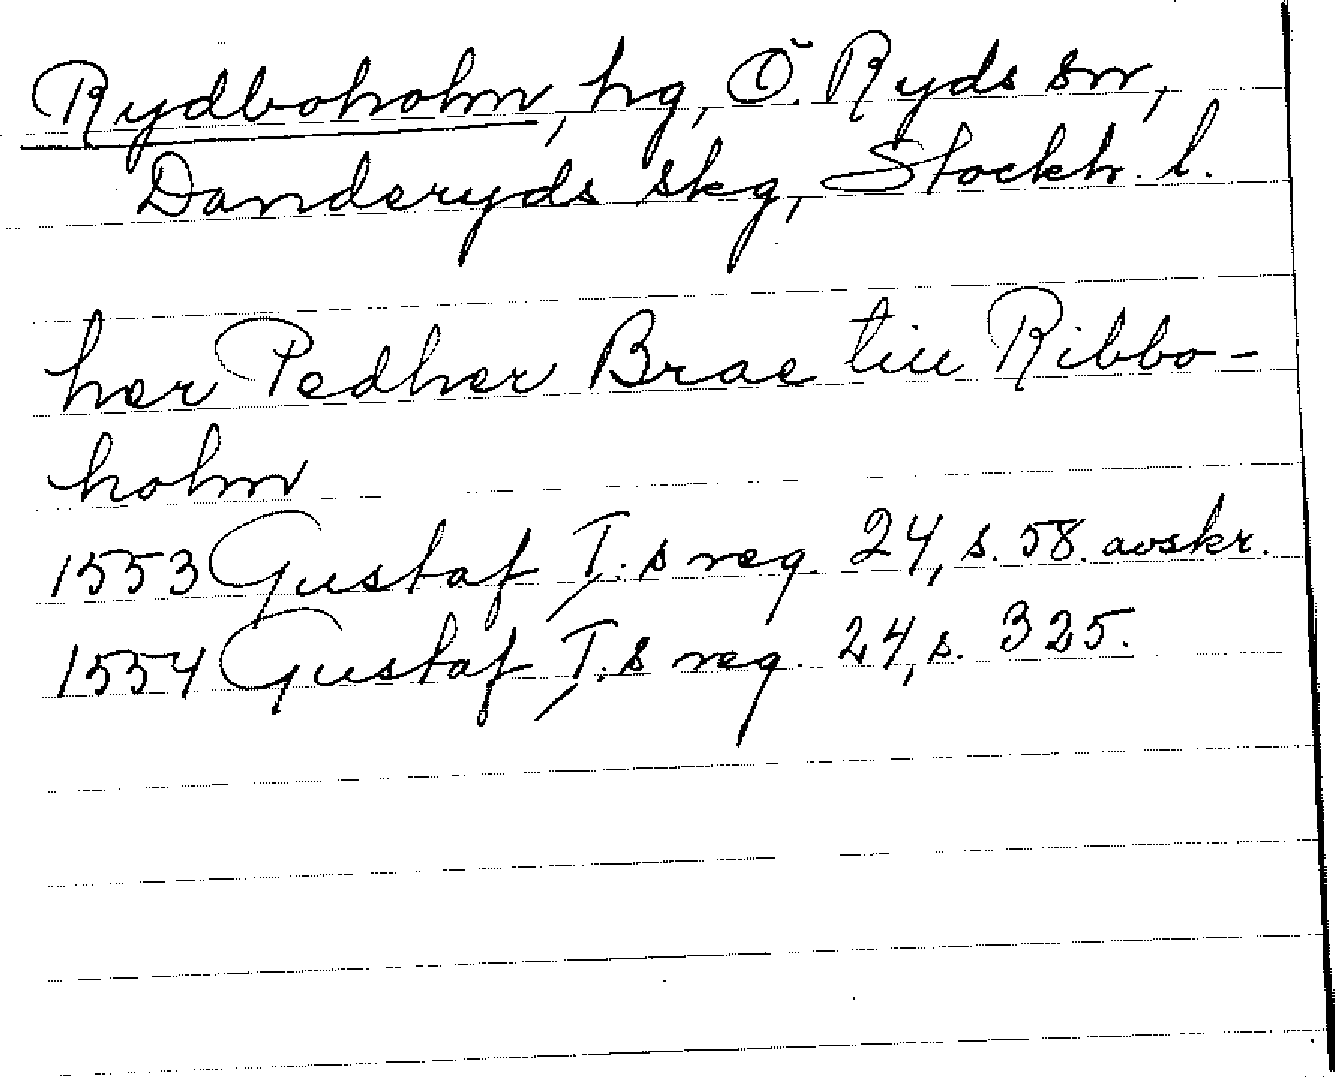 Rydboholm, hg, Ö. Ryds sn,
Danderyds skg, Stockh. l.
her Pedher Brae till Ribbo-
holm
1553 Gustaf I.s reg. 24, s. 58. avskr.
1554 Gustaf I.s reg. 24, s. 325.